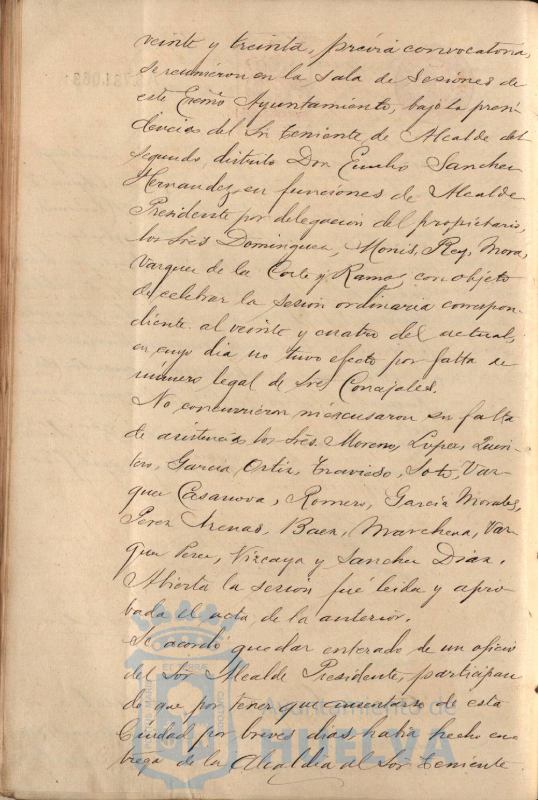 veinte y treinta, previa convocatoria,
se reunieron en la Sala de Sesiones de
este Excmo Ayuntamiento, bajo la presi
dencia del Sr. Teniente de Alcalde del
segundo distrito Don Emilio Sanchez
Hernandez, en funciones de Alcalde
Presidente por delegacion del propietario,
los Sres Dominguez, Monis, Rey, Mora,
Vazquez de la Corte y Rama, con objeto
de celebrar la sesion ordinaria correspon
diente al veinte y cuatro del actual,
en cuyo dia no tuvo efecto por falta de
número legal de Sres Concejales.
No concurrieron ni escusaron su falta
de asistencia los Sres. Moreno, Lopez, Quin
tero, Garcia Ortiz, Travieso, Soto, Vaz-
quez Casanova, Romero, Garcia Morales,
Perez Arenas, Baez, Marchena, Vaz-
quez Perez, Vizcaya y Sanchez Diaz.
Abierta la sesion fué leida y apro
bada el acta de la anterior.
Se acordó quedar enterado de un oficio
del Sor Alcalde Presidente, participan
do que por tener que ausentarse de esta
Ciudad por breves dias, habia hecho en
trega de la Alcaldia al Sor Teniente
Ayuntamiento de
HUELVA